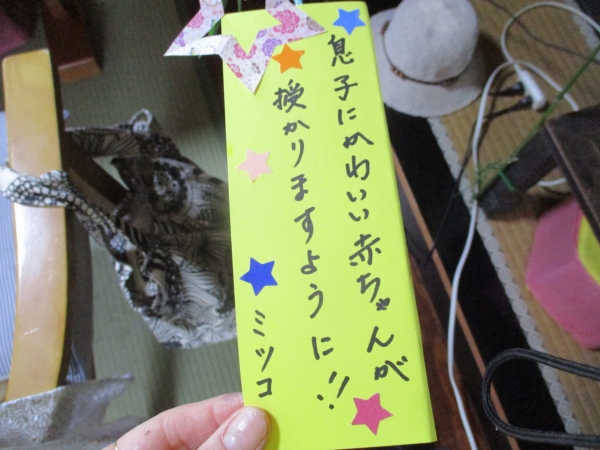 息子にかわいい赤ちゃんが
授かりますように!!
ミツコ